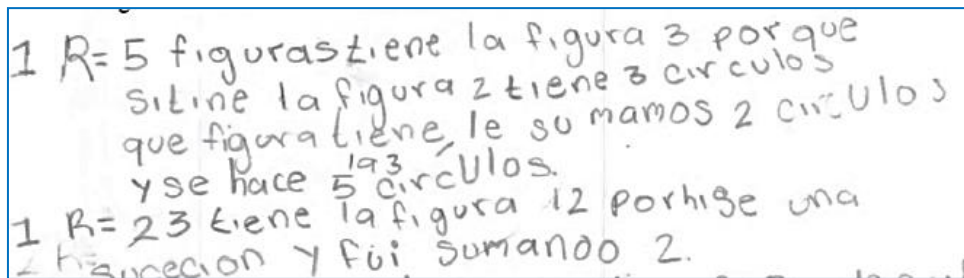 1 R= 5 figuras tiene la figura 3 porque
sitine la figura 2 tiene 3 circulos
que figura tiene, le su mamos 2 circulos
la 3
y se hace 5 circulos.
1 R= 23 tiene la figura 12 porhise una
sucecion y fui sumando 2.